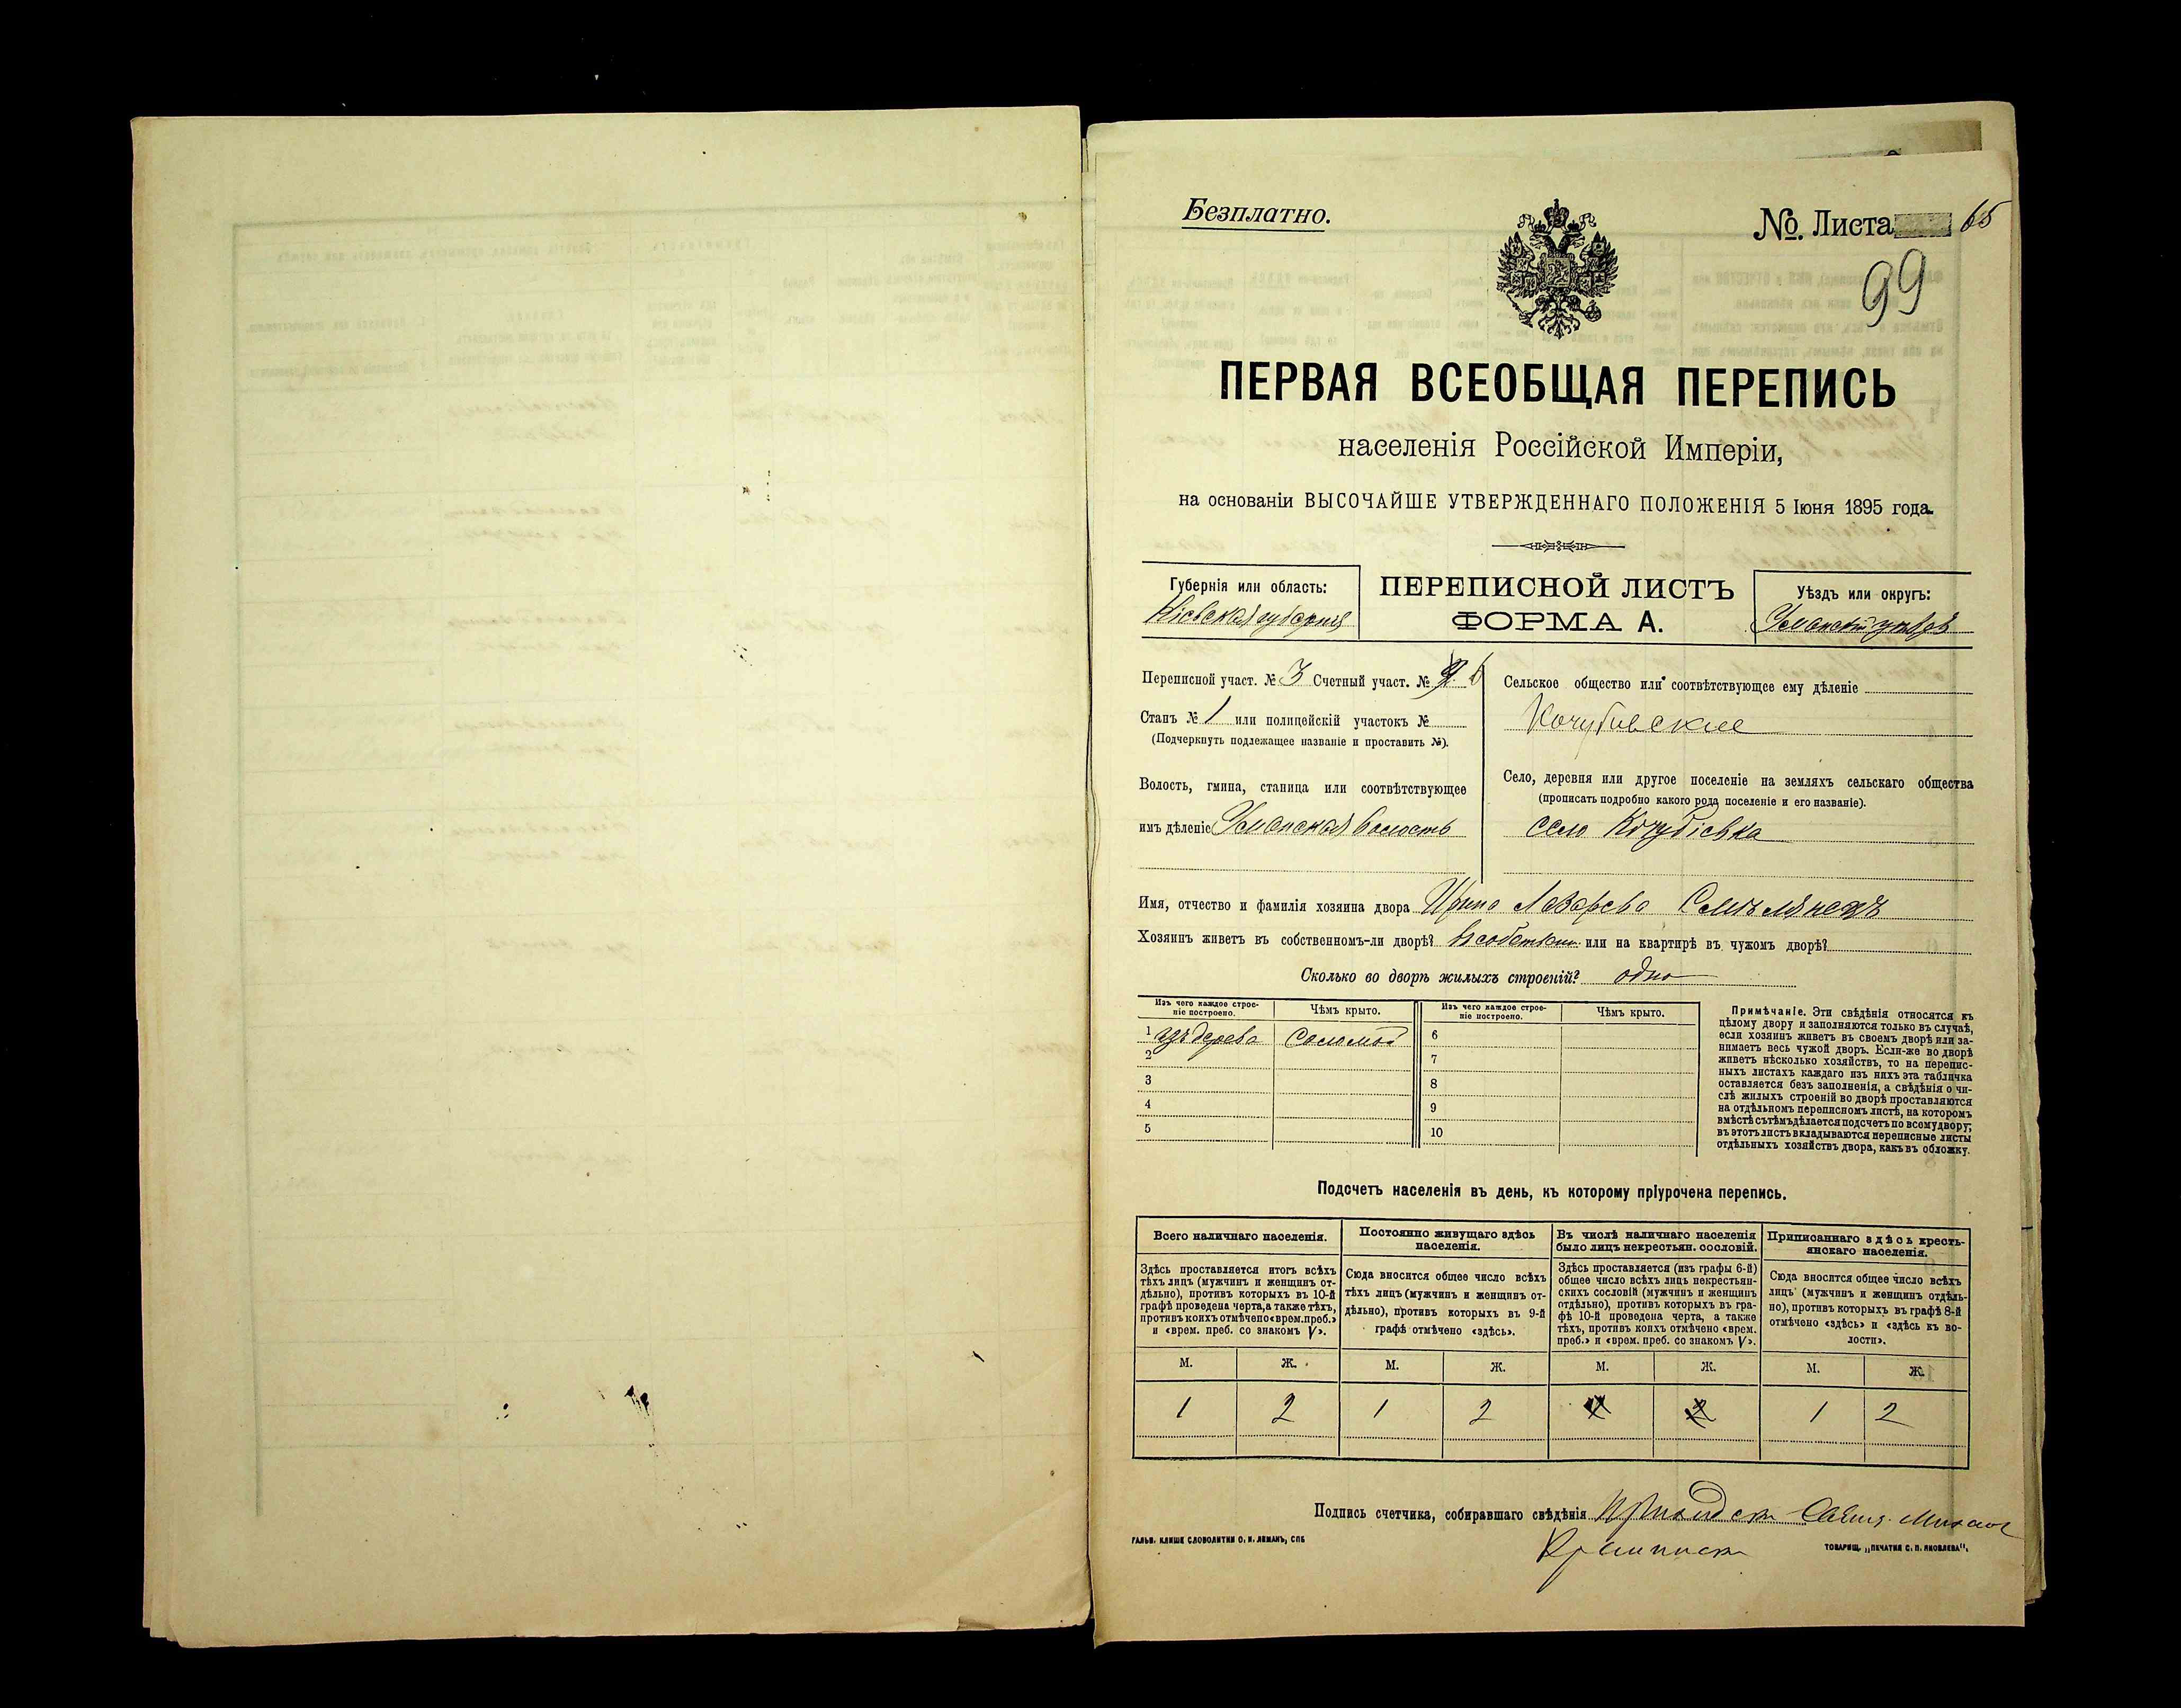 Безплатно.
№ Листа 65
99
ПЕРВАЯ ВСЕОБЩАЯ ПЕРЕПИСЬ
населенія Россійской Имперіи,
на основаніи ВЫСОЧАЙШЕ УТВЕРЖДЕННАГО ПОЛОЖЕНІЯ 5 Іюня 1895 года.
Губернія или область:
Кіевская губернія
ПЕРЕПИСНОЙ ЛИСТЪ
ФОРМА А.
Уѣздъ или округъ:
Уманскій уѣздъ
Переписной участ. № 3 Счетный участ. № 6
Станъ № 1 или полицейскій участокъ №
(Подчеркнуть подлежащее названіе и проставить №).
Волость, гмина, станица или соотвѣтствующее
имъ дѣленіе Уманская волость
Сельское общество или соотвѣтствующее ему дѣленіе
Кочубіевское
Село, деревня или другое поселеніе на земляхъ сельскаго общества
(прописать подробно какого рода поселеніе и его названіе).
село Кочубіевка
Имя, отчество и фамилія хозяина двора Ирина Лазарева
Хозяинъ живетъ въ собственномъ-ли дворѣ? въ собствен. или на квартирѣ въ чужомъ дворѣ?
Сколько во дворѣ жилыхъ строеній? одно
Изъ чего каждое строе-
ніе построено.
Чѣмъ крыто.
Изъ чего каждое строе-
ніе построено.
Чѣмъ крыто.
1 изъ дерева Соломой 6
2 7
3 8
4 9
5 10
Примѣчаніе. Эти свѣдѣнія относятся къ
цѣлому двору и заполняются только въ случаѣ,
если хозяинъ живетъ въ своемъ дворѣ или за-
нимаетъ весь чужой дворъ. Если-же во дворѣ
живетъ нѣсколько хозяйствъ, то на перепис-
ныхъ листахъ каждаго изъ нихъ эта табличка
оставляется безъ заполненія, а свѣдѣнія о чи-
слѣ жилыхъ строеній во дворѣ проставляются
на отдѣльномъ переписномъ листѣ, на которомъ
вмѣстѣ съ тѣмъ дѣлается подсчетъ по всему двору;
въ этотъ листъ вкладываются переписные листы
отдѣльныхъ хозяйствъ двора, какъ въ обложку.
Подсчетъ населенія въ день, къ которому пріурочена перепись.
Всего наличнаго населенія.
Здѣсь проставляется итогъ всѣхъ
тѣхъ лицъ (мужчинъ и женщинъ от-
дѣльно), противъ которыхъ въ 10-й
графѣ проведена черта, а также тѣхъ,
противъ коихъ отмѣчено «врем. преб.»
и «врем. преб. со знакомъ V».
Постоянно живущаго здѣсь
населенія.
Сюда вносится общее число всѣхъ
тѣхъ лицъ (мужчинъ и женщинъ от-
дѣльно), противъ которыхъ въ 9-й
графѣ отмѣчено «здѣсь».
Въ числѣ наличнаго населенія
было лицъ некрестьян. сословій.
Здѣсь проставляется (изъ графы 6-й)
общее число всѣхъ лицъ некрестьян-
скихъ сословій (мужчинъ и женщинъ
отдѣльно), противъ которыхъ въ гра-
фѣ 10-й проведена черта, а также
тѣхъ, противъ коихъ отмѣчено «врем.
преб.» и «врем. преб. со знакомъ V».
Приписаннаго здѣсь кресть-
янскаго населенія.
Сюда вносится общее число всѣхъ
лицъ (мужчинъ и женщинъ отдѣль-
но), противъ которыхъ въ графѣ 8-й
отмѣчено «здѣсь» и «здѣсь къ во-
лости».
М. Ж. М. Ж. М. Ж. М. Ж.
1 2 1 2 1 2 1 2
Подпись счетчика, собиравшаго свѣдѣнія
ГАЛЬВ. КЛИШЕ СЛОВОЛИТНИ О. И. ЛЕМАНЪ, СПБ
ТОВАРИЩ. „ПЕЧАТНЯ С. П. ЯКОВЛЕВА".